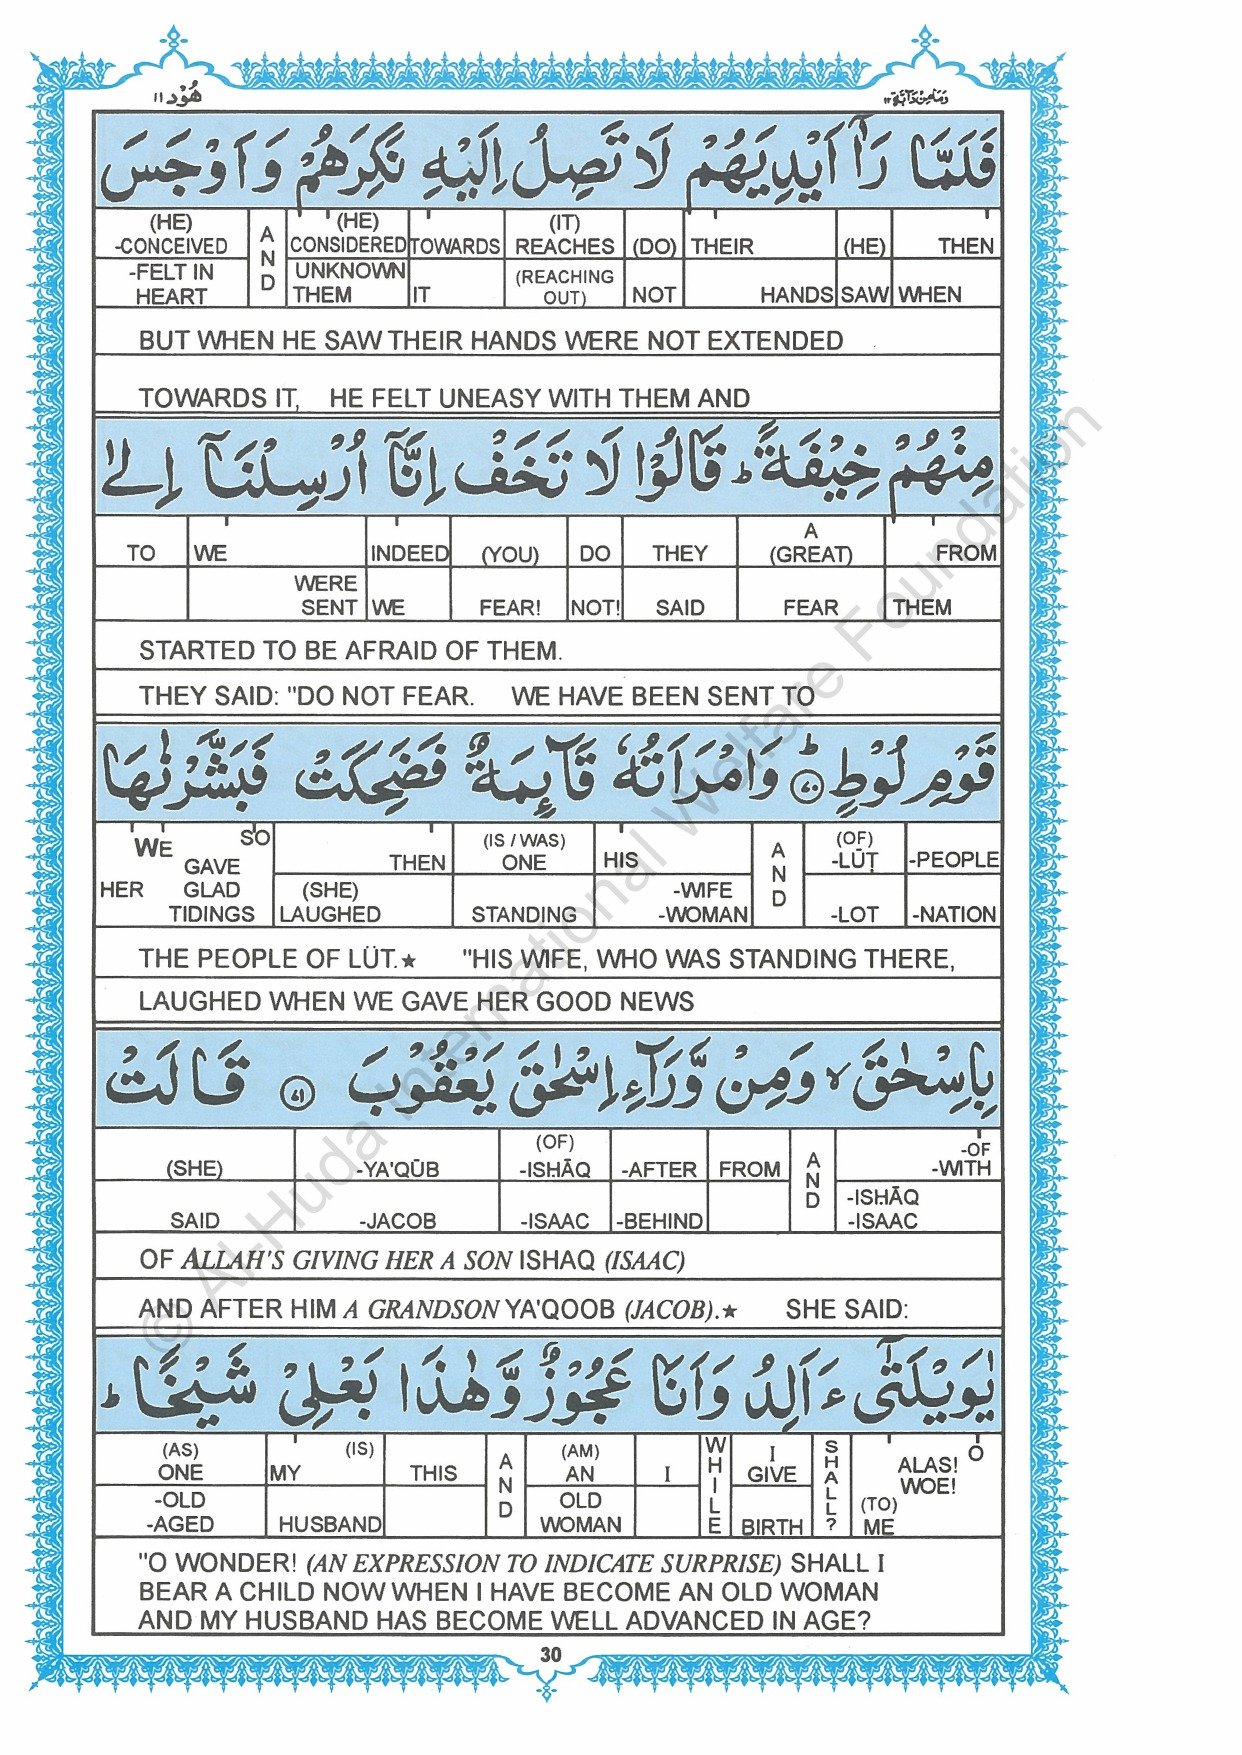 هُوْد ١١ وَمَا مِنْ دَآبَّة ١٢
فَلَمَّا رَاٰۤ اَيْدِيَهُمْ لَا تَصِلُ اِلَيْهِ نَكِرَهُمْ وَاَوْجَسَ
(HE) (HE) (IT)
-CONCEIVED AND CONSIDERED TOWARDS REACHES (DO) THEIR (HE) THEN
-FELT IN UNKNOWN (REACHING
HEART THEM IT OUT) NOT HANDS SAW WHEN
BUT WHEN HE SAW THEIR HANDS WERE NOT EXTENDED
TOWARDS IT, HE FELT UNEASY WITH THEM AND
مِنْهُمْ خِيْفَةً ؕ قَالُوْا لَا تَخَفْ اِنَّاۤ اُرْسِلْنَاۤ اِلٰى
A
TO WE INDEED (YOU) DO THEY (GREAT) FROM
WERE
SENT WE FEAR! NOT! SAID FEAR THEM
STARTED TO BE AFRAID OF THEM.
THEY SAID: "DO NOT FEAR. WE HAVE BEEN SENT TO
قَوْمِ لُوْطٍ ؕ ٧٠ وَامْرَاَتُهٗ قَآئِمَةٌ فَضَحِكَتْ فَبَشَّرْنٰهَا
WE SO (IS / WAS) (OF)
GAVE THEN ONE HIS AND -LŪṬ -PEOPLE
HER GLAD (SHE) -WIFE
TIDINGS LAUGHED STANDING -WOMAN -LOT -NATION
THE PEOPLE OF LÜT.★ "HIS WIFE, WHO WAS STANDING THERE,
LAUGHED WHEN WE GAVE HER GOOD NEWS
بِاِسْحٰقَ ۙ وَمِنْ وَّرَآءِ اِسْحٰقَ يَعْقُوْبَ ٧١ قَالَتْ
(OF) -OF
(SHE) -YA'QŪB -ISḤĀQ -AFTER FROM AND -WITH
-ISḤĀQ
SAID -JACOB -ISAAC -BEHIND -ISAAC
OF ALLAH'S GIVING HER A SON ISHAQ (ISAAC)
AND AFTER HIM A GRANDSON YA'QOOB (JACOB).★ SHE SAID:
يٰوَيْلَتٰٓى ءَاَلِدُ وَاَنَا عَجُوْزٌ وَّهٰذَا بَعْلِيْ شَيْخًا ؕ
(AS) (IS) (AM) I ALAS! O
ONE MY THIS AND AN I WHILE GIVE SHALL? WOE!
-OLD OLD (TO)
-AGED HUSBAND WOMAN BIRTH ME
"O WONDER! (AN EXPRESSION TO INDICATE SURPRISE) SHALL I
BEAR A CHILD NOW WHEN I HAVE BECOME AN OLD WOMAN
AND MY HUSBAND HAS BECOME WELL ADVANCED IN AGE?
30
© Al-Huda International Welfare Foundation